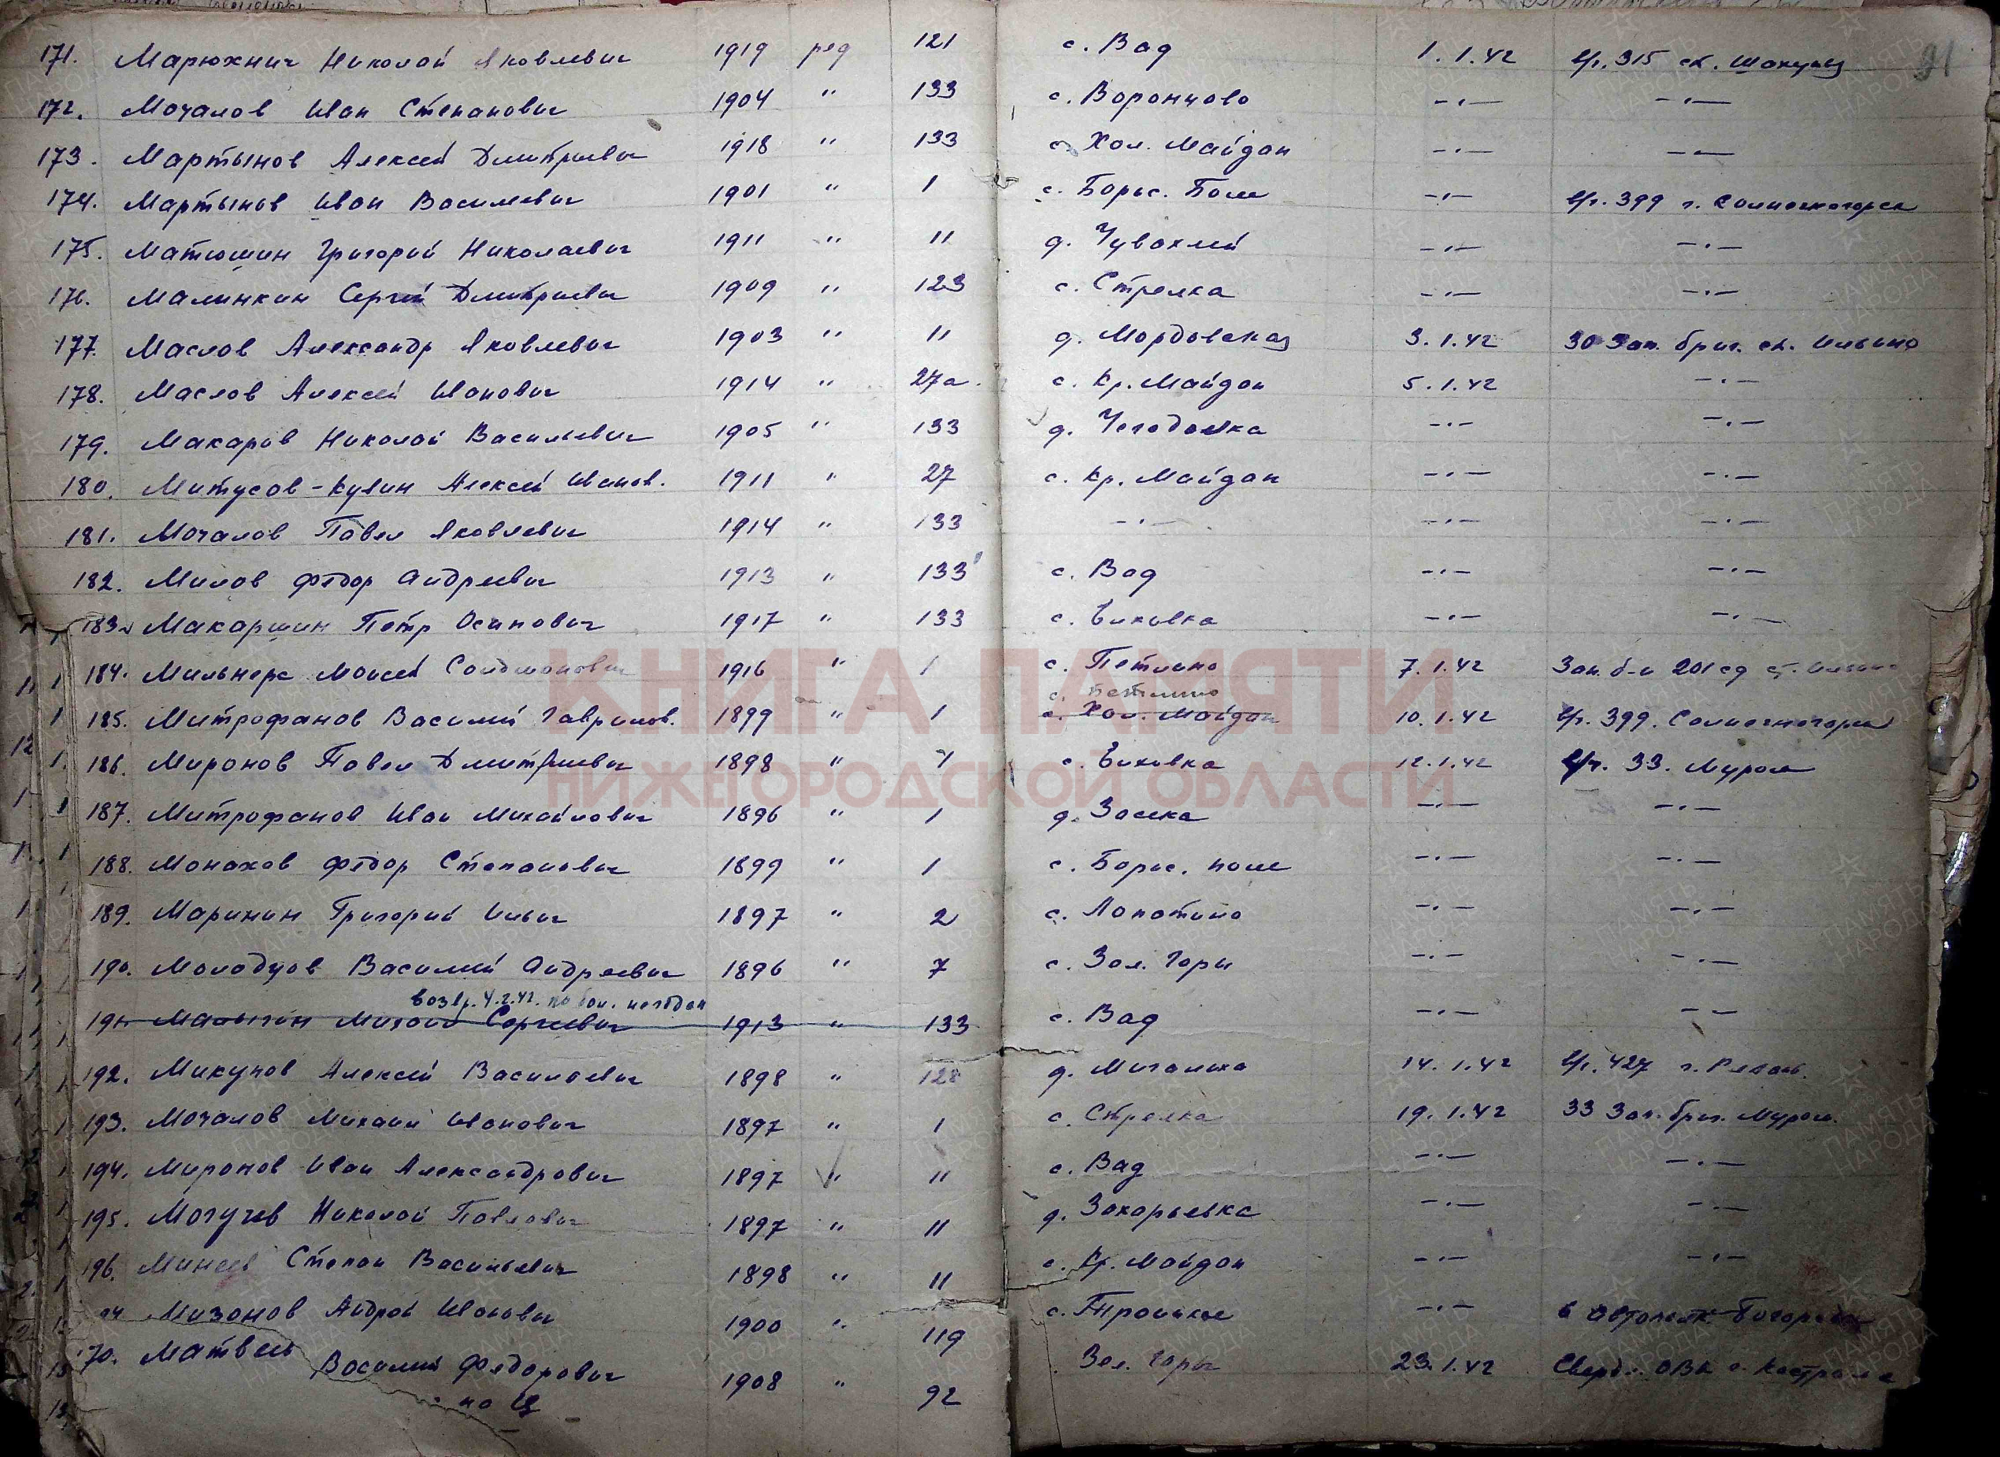 171. Марюхнич Николай Яковлевич 1919 ряд 121 с. Вад 1.1.42 в/ч. 315 ст. Шахунья 91
172. Мочалов Иван Степанович 1904 " 133 с. Воронцово -·- -·-
173. Мартынов Алексей Дмитриевич 1918 " 133 с. Хол. Майдан -·- -·-
174. Мартынов Иван Васильевич 1901 " 1 с. Борис. Поле -·- в/ч. 399 г. Солнечногорск
175. Матюшин Григорий Николаевич 1911 " 11 д. Чувахлей -·- -·-
176. Малинкин Сергей Дмитриевич 1909 " 123 с. Стрелка -·- -·-
177. Маслов Александр Яковлевич 1903 " 11 д. Мордовская 3.1.42 30 Зап. бриг. ст. Ильино
178. Маслов Алексей Иванович 1914 " 27а. с. Кр. Майдан 5.1.42 -·-
179. Макаров Николай Васильевич 1905 " 133 д. Чегодаевка -·- -·-
180. Митусов-Кулин Алексей Иванов. 1911 " 27 с. Кр. Майдан -·- -·-
181. Мочалов Павел Яковлевич 1914 " 133 -·- -·- -·-
182. Милов Федор Андреевич 1913 " 133 с. Вад -·- -·-
183. Макаршин Петр Осипович 1917 " 133 с. Быковка -·- -·-
184. Мильнерс Моисей 1916 " 1 с. Петлино 7.1.42 Зап. б-н 201 сд ст. Ильино
с. Петлино
185. Митрофанов Василий Гаврилов. 1899 " 1 с. Хол. Майдан 10.1.42 в/ч. 399. Солнечногорск
186. Миронов Павел Дмитриевич 1898 " 1 с. Быковка 12.1.42 в/ч. 33. Муром
187. Митрофанов Иван Михайлович 1896 " 1 д. Засека -·- -·-
188. Монахов Федор Степанович 1899 " 1 с. Борис. поле -·- -·-
189. Маринин Григорий Ильич 1897 " 2 с. Лопатино -·- -·-
190. Молодцов Василий Андреевич 1896 " 7 с. Зол. Горы -·- -·-
возвр. 4.2.42. по бол. негоден
191. Малыгин Михаил Сергеевич 1913 " 133 с. Вад -·- -·-
192. Микунов Алексей Васильевич 1898 " 128 д. Мигалиха 14.1.42 в/ч. 427 г. Рязань.
193. Мочалов Михаил Иванович 1897 " 1 с. Стрелка 19.1.42 33 Зап. бриг. Муром.
194. Миронов Иван Александрович 1897 " 11 с. Вад -·- -·-
195. Могучев Николай Павлович 1897 " 11 д. Захарьевка -·- -·-
196. Минеев Степан Васильевич 1898 " 11 с. Кр. Майдан -·- -·-
Мизонов Андрей Иванович 1900 " 119 с. Троицкое -·- в автополк
70. Матвеев Василий Федорович 1908 " 92 Зол. Горы 23.1.42 Сверд. ОВК г. Кострома
на Ц
КНИГА ПАМЯТИ
НИЖЕГОРОДСКОЙ ОБЛАСТИ